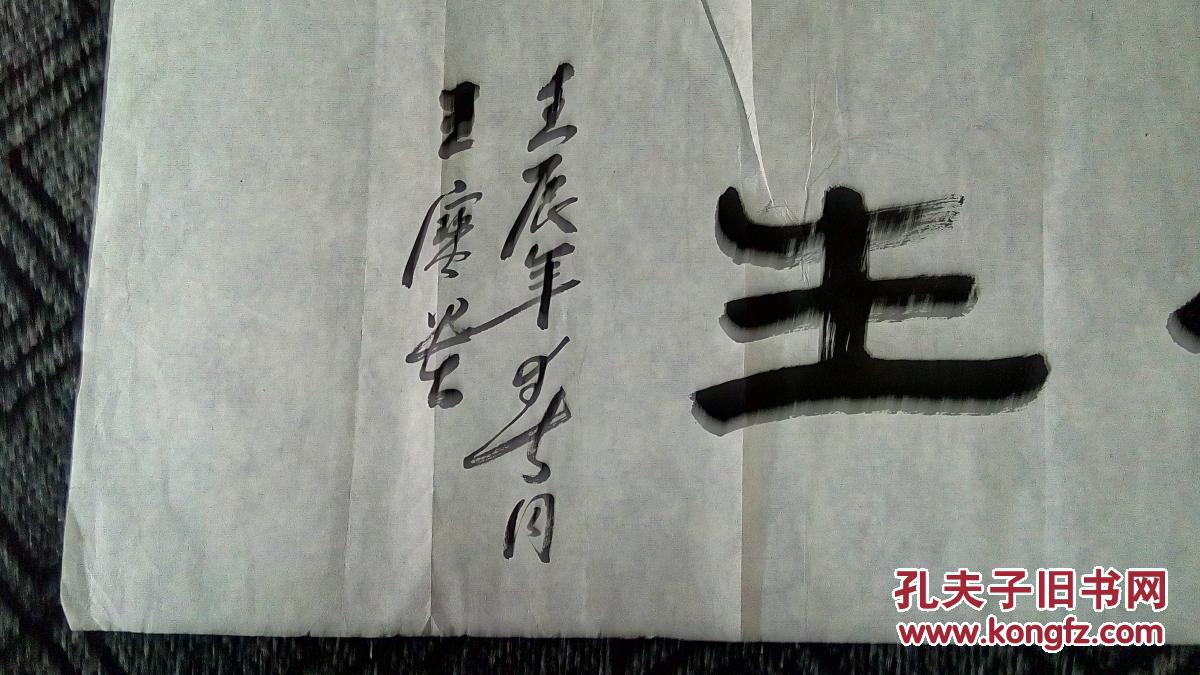 生
壬辰年夏月
王
孔夫子旧书网
www.kongfz.com